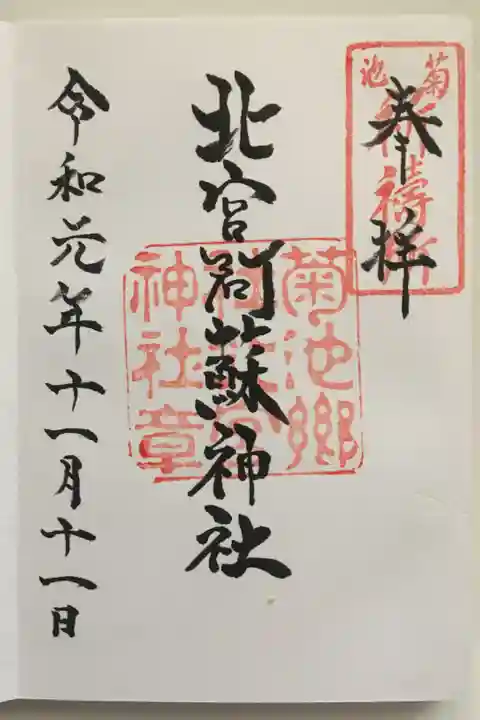 奉拝
菊池
祈禱所
北宮阿蘇神社
菊池郷
神社章
令和元年十一月十一日